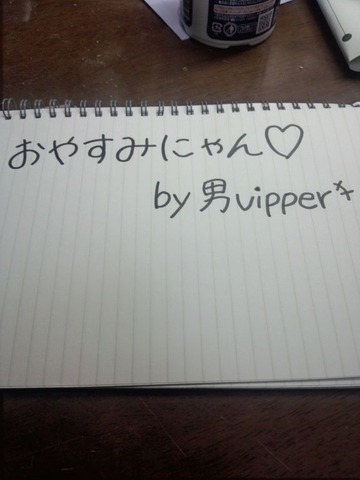 おやすみにゃん♡
by 男vipper